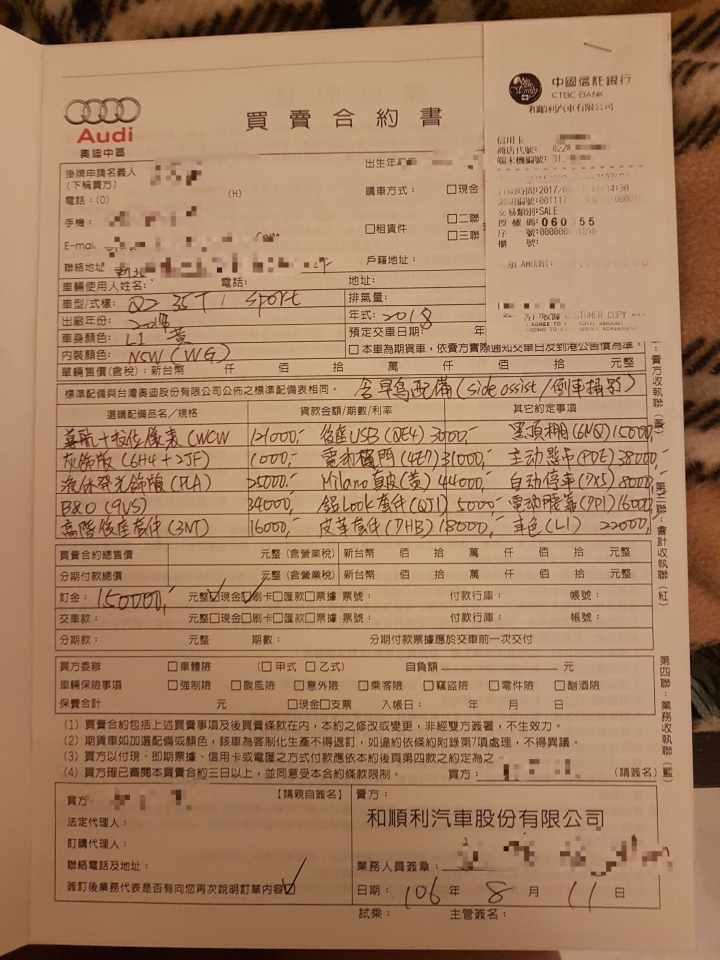 Audi
奧迪中區
買賣合約書
中國信託銀行
CTBC BANK
和順利汽車有限公司
信用卡
商店代號:
端末機編號: 31
交易類別:SALE
授權碼:060355
序 號:
櫃 號:
掛牌申請名義人
(下稱買方)
出生年
電話:(O) (H)
購車方式: □現金
手機:
□租賃件 □二聯
□三聯
E-mail
聯絡地址
戶籍地址:
車輛使用人姓名: 電話: 地址:
車型/式樣: Q2 35T Sport 排氣量:
出廠年份: 年式: 2018
車身顏色: L1 黃 預定交車日期: 年
內裝顏色: NSW (WG) □本車為期貨車,依賣方實際通知交車日及到港公告價為準。
單輛售價(含稅):新台幣 仟 佰 拾 萬 仟 佰 拾 元整
標準配備與台灣奧迪股份有限公司公佈之標準配備表相同。 含早鳥配備(side assist/倒車攝影)
選購配備品名/規格 貸款金額/期數/利率 其它約定事項
導航+數位儀表(WCW 121000,- 後座USB(QE4) 3000,- 黑頂棚(6NQ) 15000,-
灰飾版(6H4+2JF) 1000,- 電動尾門(4E7) 31000,- 主動懸吊(PDE) 38000,-
(PLA) 25000,- Milano真皮(黃) 44000,- 自動停車(7X5) 8000,-
B&O (9VS) 34000,- 鋁Look套件(QJ1) 5000,- 電動腰靠(7P1) 16000,-
高階後座套件(3NT) 16000,- 皮革套件(7HB) 18000,- 車色(L1) 22000,-
買賣合約總售價 元整(含營業稅) 新台幣 佰 拾 萬 仟 佰 拾 元整
分期付款總價 元整(含營業稅) 新台幣 佰 拾 萬 仟 佰 拾 元整
訂金: 150000,- 元整□現金□刷卡□匯款□票據 票號: 付款行庫: 帳號:
交車款: 元整□現金□刷卡□匯款□票據 票號: 付款行庫: 帳號:
分期款: 元整 期數: 分期付款票據應於交車前一次交付
買方委辦 □車體險 (□甲式 □乙式) 自負額 元
車輛保險事項 □強制險 □颱風險 □意外險 □乘客險 □竊盜險 □零件險 □酗酒險
保費合計 元 □現金□支票 入帳日: 年 月 日
(1) 買賣合約包括上述買賣事項及後買賣條款在內,本約之修改或變更,非經雙方簽署,不生效力。
(2) 期貨車如加選配備或顏色,該車為客制化生產不得退訂,如違約依條約附錄第7項處理,不得異議。
(3) 買方以付現、即期票據、信用卡或電匯之方式付款應依本約後買第四款之約定為之
(4) 買方確已審閱本買賣合約三日以上,並同意受本合約條款限制。 買方: (請簽名)
買方 【請親自簽名】
賣方:
和順利汽車股份有限公司
法定代理人:
訂購代理人:
聯絡電話及地址:
業務人員簽章:
簽訂後業務代表是否有向您再次說明訂單內容□
日期: 106 年 8 月 11 日
試乘: 主管簽名:
賣方收執聯(黃)
第三聯:會計收執聯(紅)
第四聯:業務收執聯(藍)